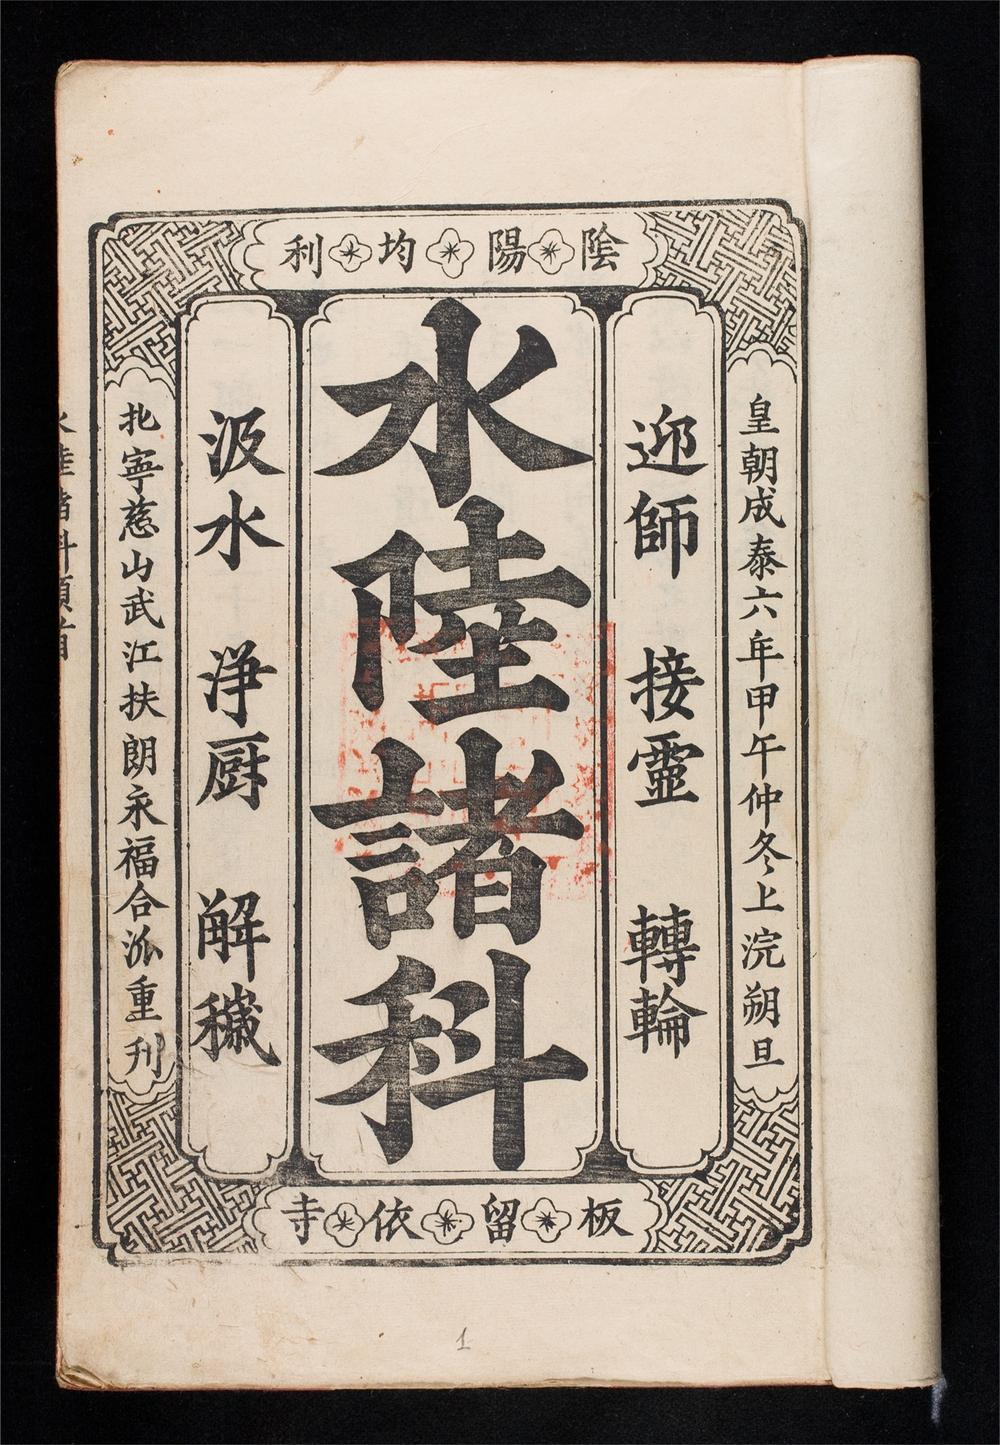 陰陽均利
皇朝成泰六年甲午仲冬上浣朔旦
迎師 接靈 轉輪
水陸諸科
汲水 淨厨 解穢
北寧慈山武江扶朗永福合派重刋
板留依寺
水陸諸科項首
1